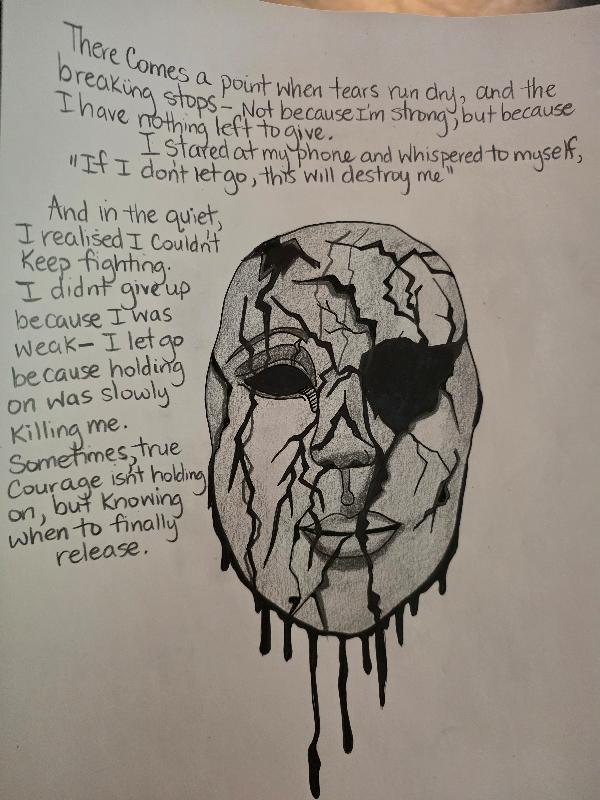 There Comes a point when tears run dry, and the
breaking stops - Not because I'm strong, but because
I have nothing left to give.
I stared at my phone and whispered to myself,
"If I don't let go, this will destroy me"
And in the quiet,
I realised I couldn't
Keep fighting.
I didnt give up
because I was
weak - I let go
because holding
on was slowly
Killing me.
Sometimes, true
Courage isn't holding
on, but Knowing
when to finally
release.